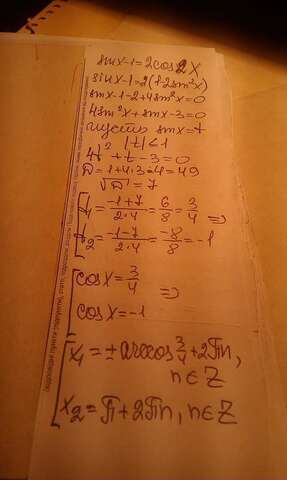 sinx-1=2cos2x
sinx-1=2(1-2sin²x)
sinx-1-2+4sin²x=0
4sin²x+sinx-3=0
пусть sinx=t
|t|≤1
4t²+t-3=0
D=1+4·3·4=49
√D=7
t₁=(-1+7)/(2·4)=6/8=3/4 =>
t₂=(-1-7)/(2·4)=-8/8=-1
cosx=3/4
=>
cosx=-1
x₁=±arccos3/4+2Пn,
n∈Z
x₂=П+2Пn, n∈Z